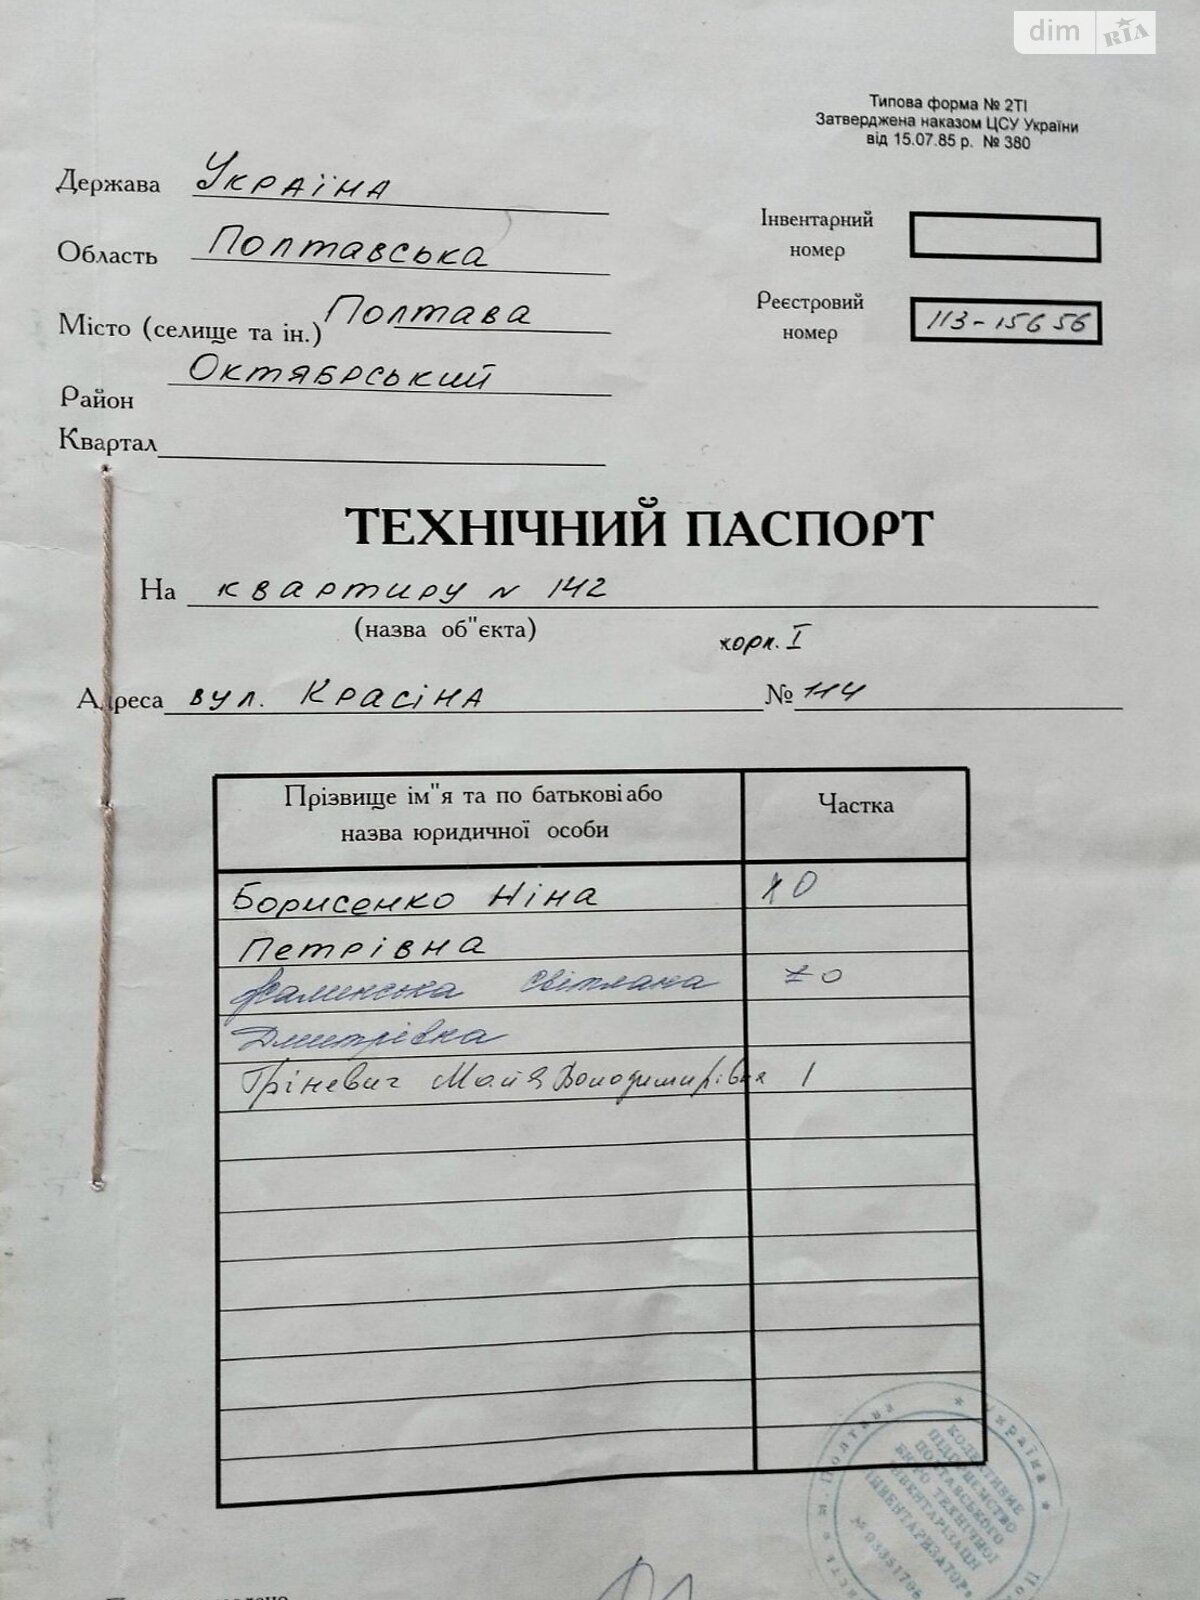 dim RIA
Типова форма № 2ТІ
Затверджена наказом ЦСУ України
від 15.07.85 р. № 380
Держава Україна
Область Полтавська
Місто (селище та ін.) Полтава
Район Октябрський
Квартал
Інвентарний номер
Реєстровий номер 113-15656
ТЕХНІЧНИЙ ПАСПОРТ
На квартиру № 142
(назва об"єкта)
корп. I
Адреса вул. Красіна № 114
Прізвище ім"я та по батькові або
назва юридичної особи
Частка
Борисенко Ніна
Петрівна
Світлана
Дмитрівна
Гріневич Майя Володимирівна 1
м. Полтава * Україна *
КОЛЕКТИВНЕ
ПІДПРИЄМСТВО
ПОЛТАВСЬКОГО
БЮРО ТЕХНІЧНОЇ
ІНВЕНТАРІЗАЦІЇ
"ІНВЕНТАРИЗАТОР"